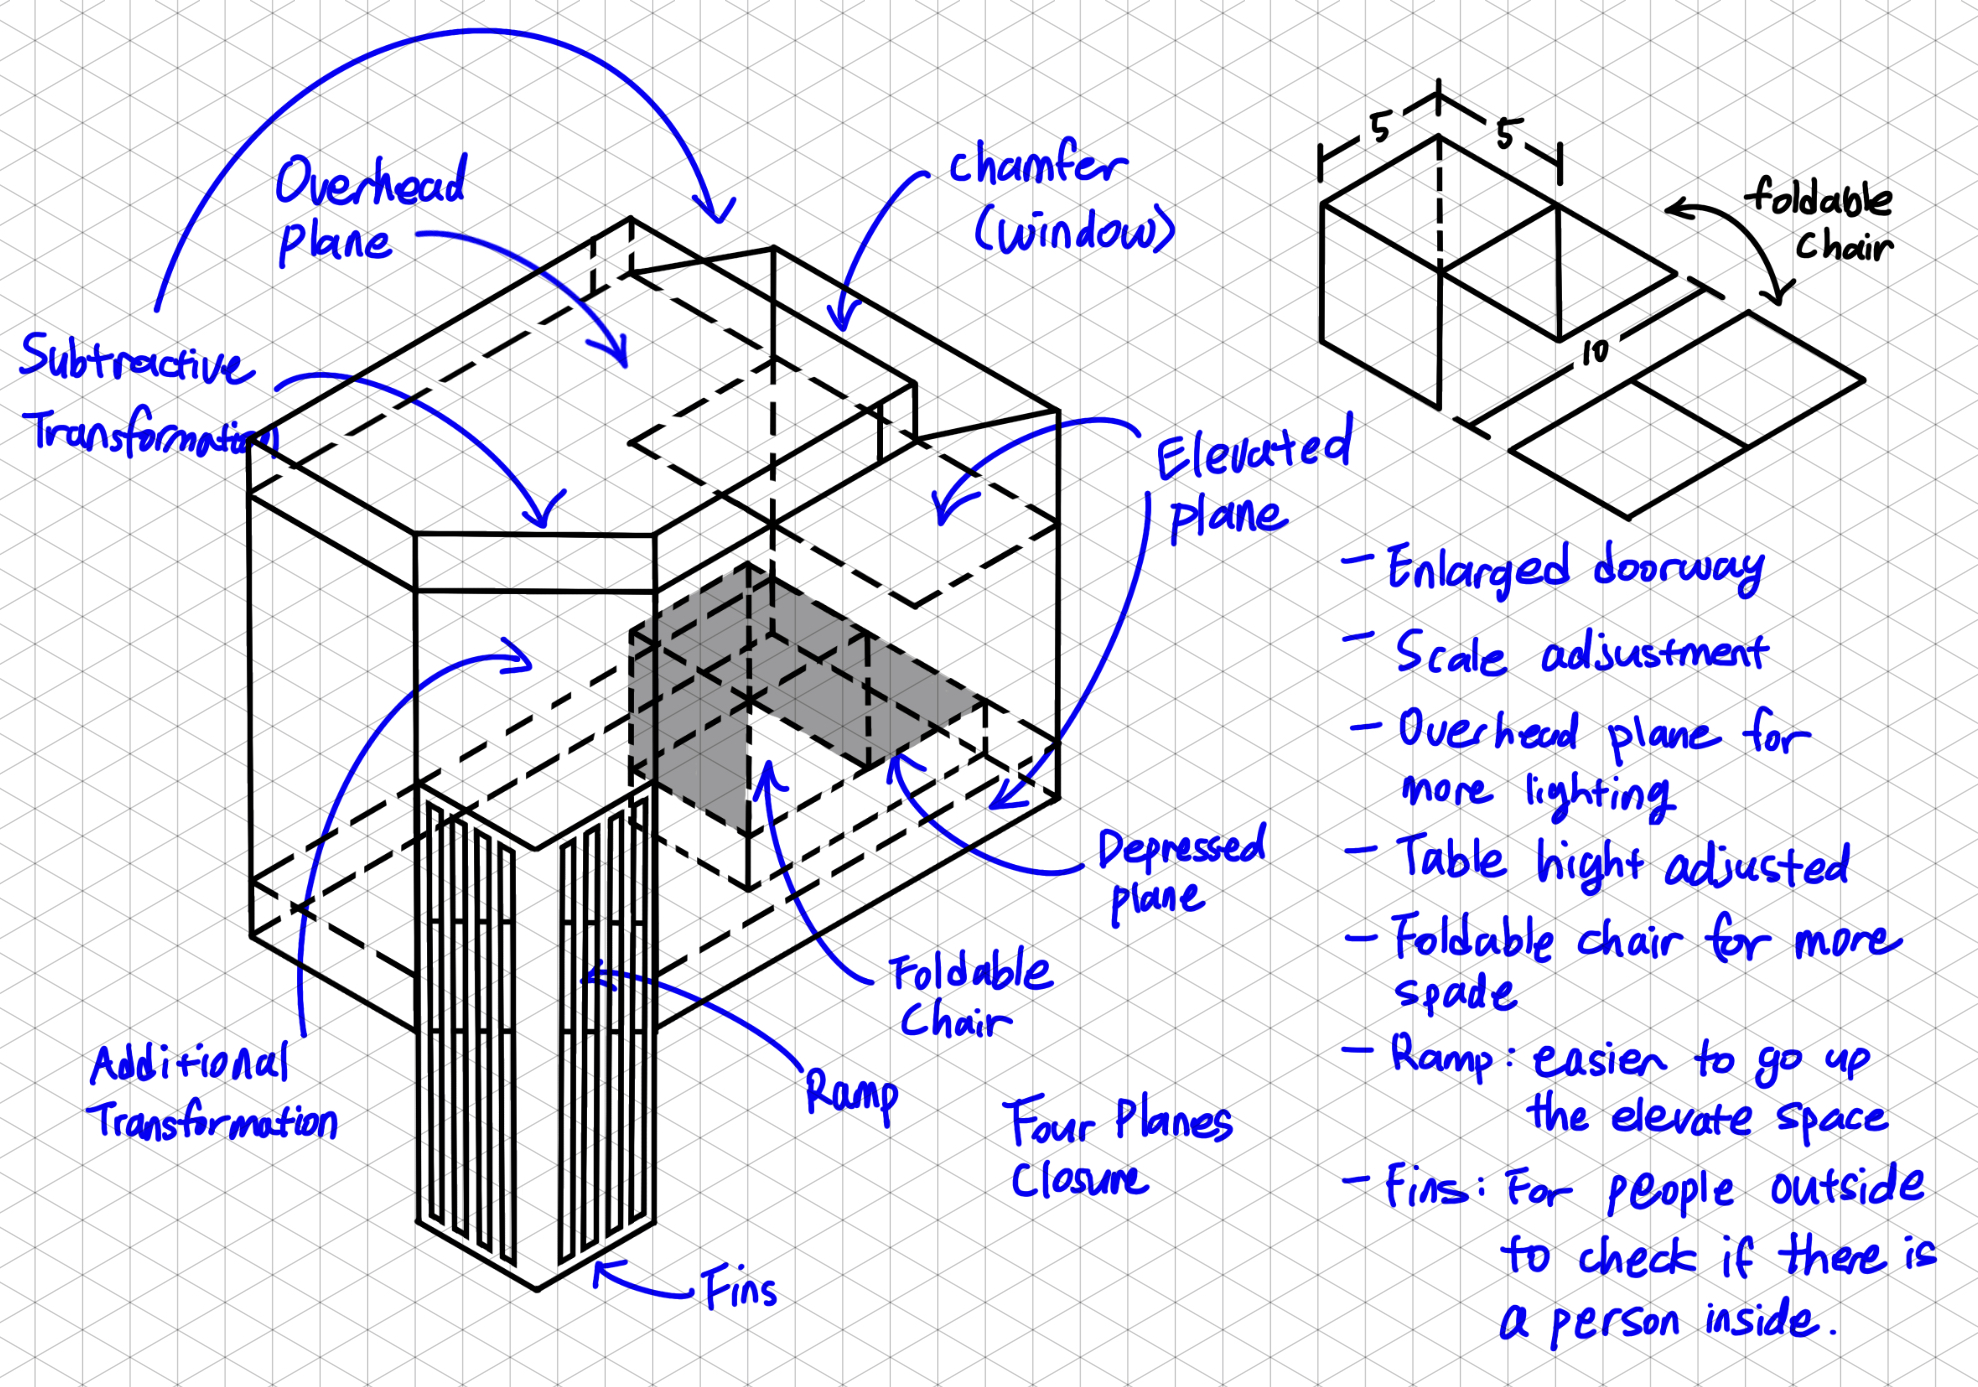 Overhead
plane
Subtractive
Transformation
chamfer
(window)
Elevated
plane
Depressed
plane
Foldable
Chair
Ramp
Additional
Transformation
Four Planes
Closure
Fins
5
5
10
foldable
chair
- Enlarged doorway
- Scale adjustment
- Overhead plane for
more lighting
- Table hight adjusted
- Foldable chair for more
spade
- Ramp: easier to go up
the elevate space
- Fins: For people outside
to check if there is
a person inside.